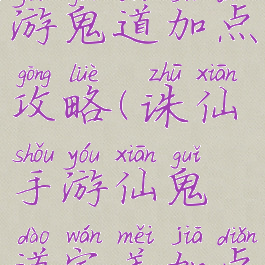 游鬼道加点
gōng lüè zhū xiān
攻略(诛仙
shǒu yóu xiān guǐ
手游仙鬼
dào wán měi jiā diǎn